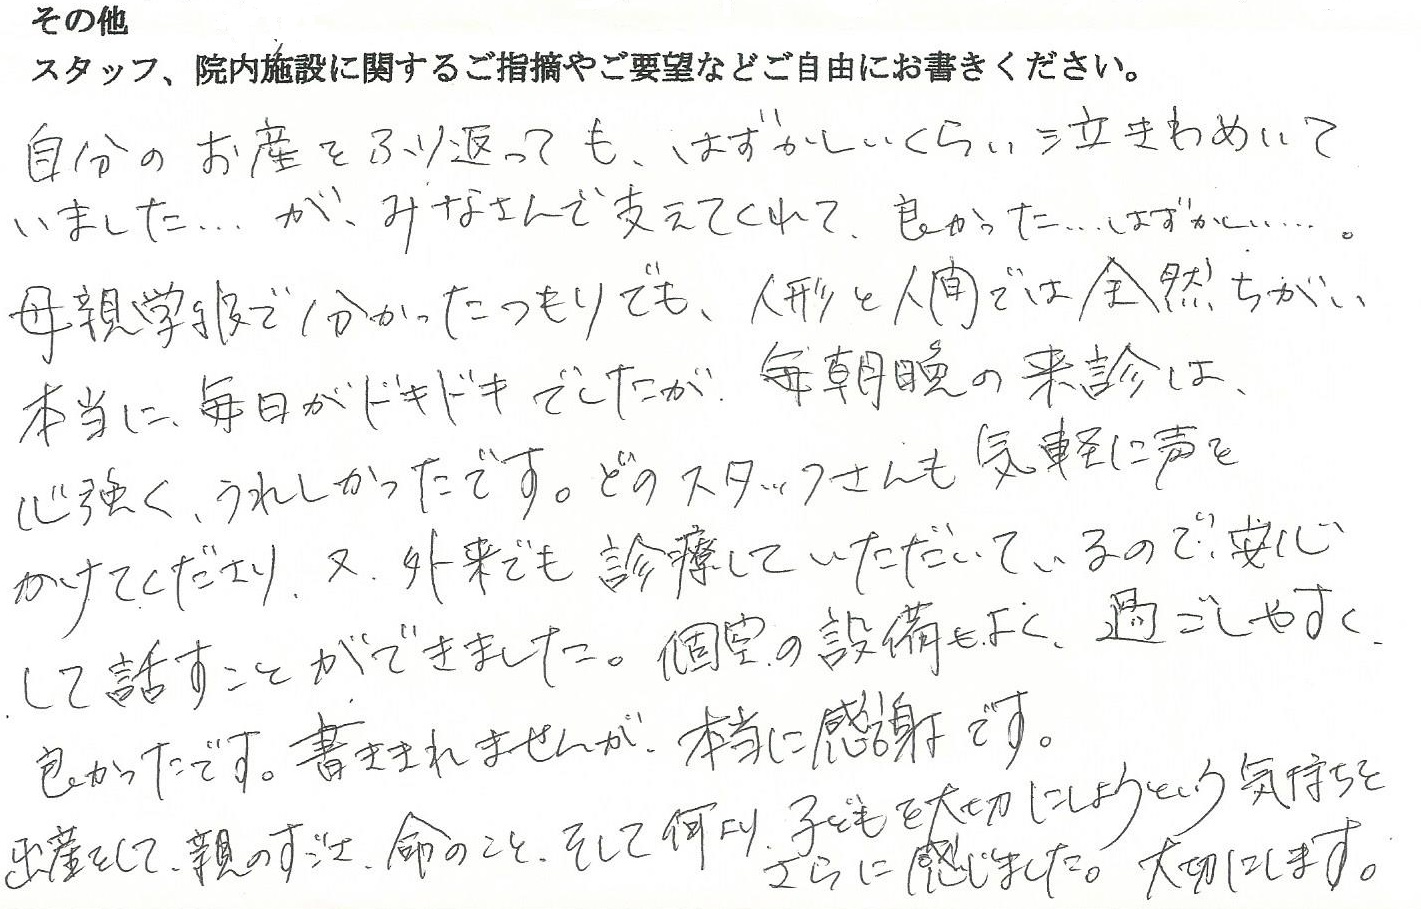 その他
スタッフ、院内施設に関するご指摘やご要望などご自由にお書きください。
自分のお産をふり返っても、はずかしいくらい泣きわめいて
いました… が、みなさんで支えてくれて、良かった…はずかしい…。
母親学級で分かったつもりでも、人形と人間では全然ちがい
本当に、毎日がドキドキでしたが、毎朝晩の来診は、
心強く、うれしかったです。どのスタッフさんも気軽に声を
かけてくださり、又、外来でも診療していただいているので、安心
して話すことができました。個室の設備もよく、過ごしやすく、
良かったです。書ききれませんが、本当に感謝です。
出産をして、親のすごさ、命のこと、そして何より、子どもを大切にしようという気持ちを
さらに感じました。大切にします。